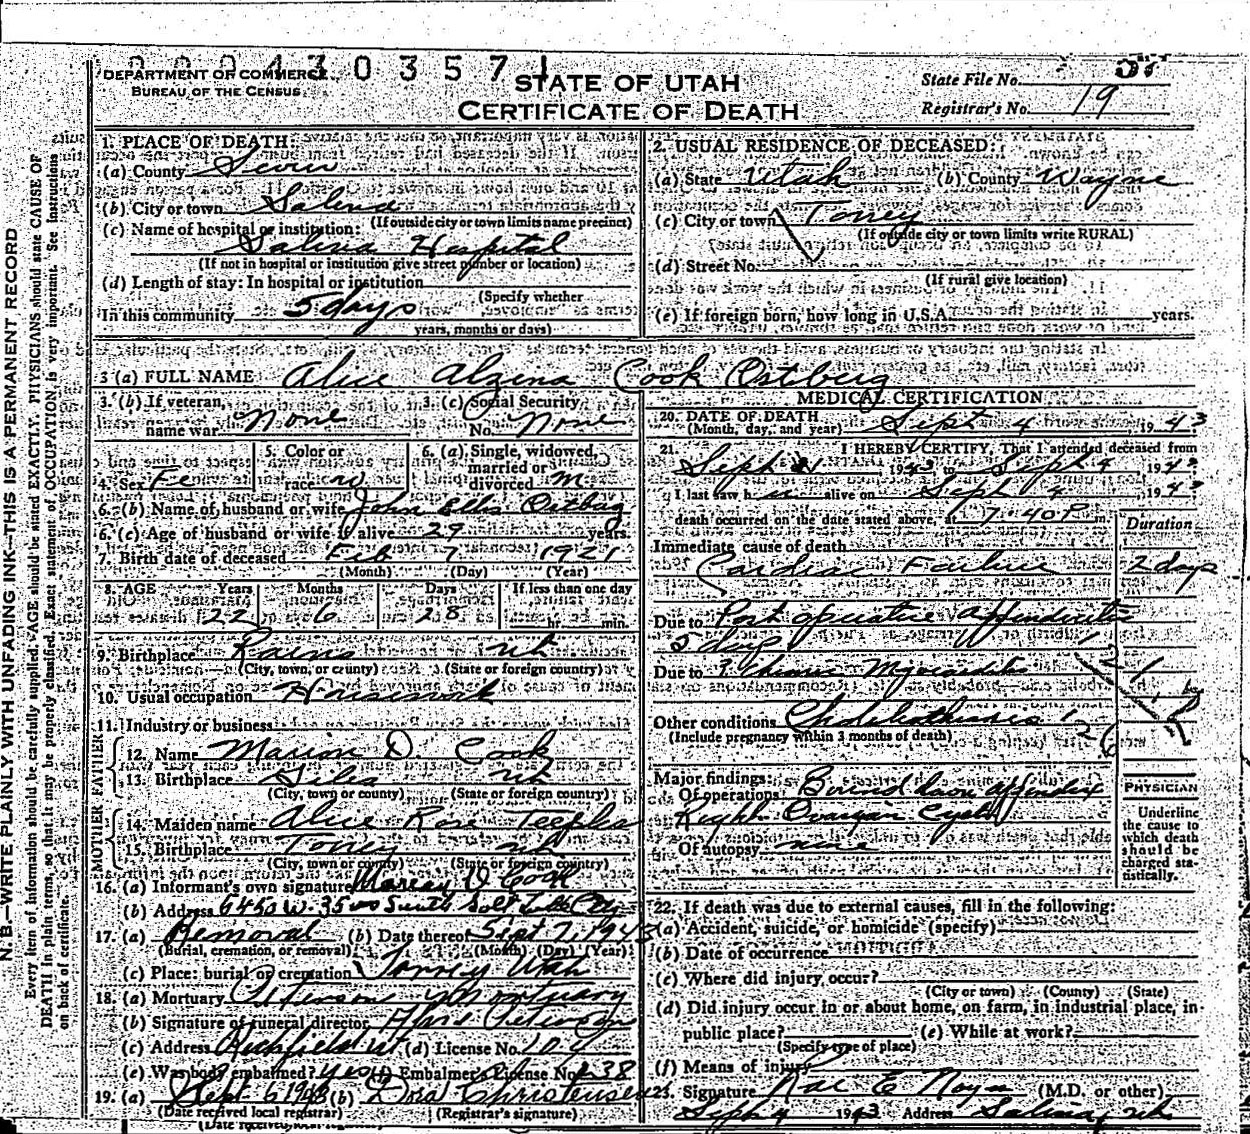 DEPARTMENT OF COMMERCE
BUREAU OF THE CENSUS
STATE OF UTAH
CERTIFICATE OF DEATH
State File No.
Registrar's No. 19
1. PLACE OF DEATH:
(a) County Sevier
(b) City or town Salina
(If outside city or town limits name precinct)
(c) Name of hospital or institution:
Salina Hospital
(If not in hospital or institution give street number or location)
(d) Length of stay: In hospital or institution
(Specify whether
In this community 5 days
years, months or days)
2. USUAL RESIDENCE OF DECEASED:
(a) State Utah (b) County Wayne
(c) City or town Torrey
(If outside city or town limits write RURAL)
(d) Street No.
(If rural give location)
(e) If foreign born, how long in U.S.A. years.
3 (a) FULL NAME Alice Alzina Cook Ostberg
3. (b) If veteran,
name war None
3. (c) Social Security
No. None
4. Sex Fe
5. Color or
race w
6. (a) Single, widowed,
married or
divorced M
6. (b) Name of husband or wife John Ellis Ostberg
6. (c) Age of husband or wife if alive 29 years.
7. Birth date of deceased Feb 7 1921
(Month) (Day) (Year)
8. AGE Years Months Days If less than one day
22 6 28 hr. min.
9. Birthplace Rains Ut
(City, town, or county) (State or foreign country)
10. Usual occupation Housework
11. Industry or business
FATHER
12. Name Marion D. Cook
13. Birthplace Ut
(City, town or county) (State or foreign country)
MOTHER
14. Maiden name Alice Rose Teeples
15. Birthplace Torrey Ut
(City, town or county) (State or foreign country)
16. (a) Informant's own signature Marion D Cook
(b) Address 6450 W. 3500 South Salt Lake City
17. (a) Removal (b) Date thereof Sept 7, 1943
(Burial, cremation, or removal) (Month) (Day) (Year)
(c) Place: burial or cremation Torrey Utah
18. (a) Mortuary Mortuary
(b) Signature of funeral director
(c) Address Richfield Ut (d) License No. 104
(e) Was body embalmed? yes (f) Embalmer's License No. 238
19. (a) Sept. 6 1943 (b) Christensen
(Date received local registrar) (Registrar's signature)
MEDICAL CERTIFICATION
20. DATE OF DEATH
(Month, day, and year) Sept 4 1943
21. I HEREBY CERTIFY, That I attended deceased from
Sept 1943 to Sept 4 1943
I last saw h er alive on Sept 4, 1943
death occurred on the date stated above, at 7:40 P m.
Duration
Immediate cause of death
Cardiac Failure 2 days
Due to Post operative appendicitis
5 days
Due to ? Chronic Myocarditis
Other conditions
(Include pregnancy within 3 months of death)
Major findings:
Of operations Bound down appendix
Right Ovarian Cyst
Of autopsy none
PHYSICIAN
Underline
the cause to
which death
should be
charged sta-
tistically.
22. If death was due to external causes, fill in the following:
(a) Accident, suicide, or homicide (specify)
(b) Date of occurrence
(c) Where did injury occur?
(City or town) (County) (State)
(d) Did injury occur in or about home, on farm, in industrial place, in
public place? (e) While at work?
(Specify type of place)
(f) Means of injury
23. Signature Rae E Noyes (M.D. or other)
Sept 4 1943 Address Salina, Ut
N. B.—WRITE PLAINLY WITH UNFADING INK—THIS IS A PERMANENT RECORD
Every item of information should be carefully supplied. AGE should be stated EXACTLY. PHYSICIANS should state CAUSE OF
DEATH in plain terms, so that it may be properly classified. Exact statement of OCCUPATION is very important. See instructions
on back of certificate.